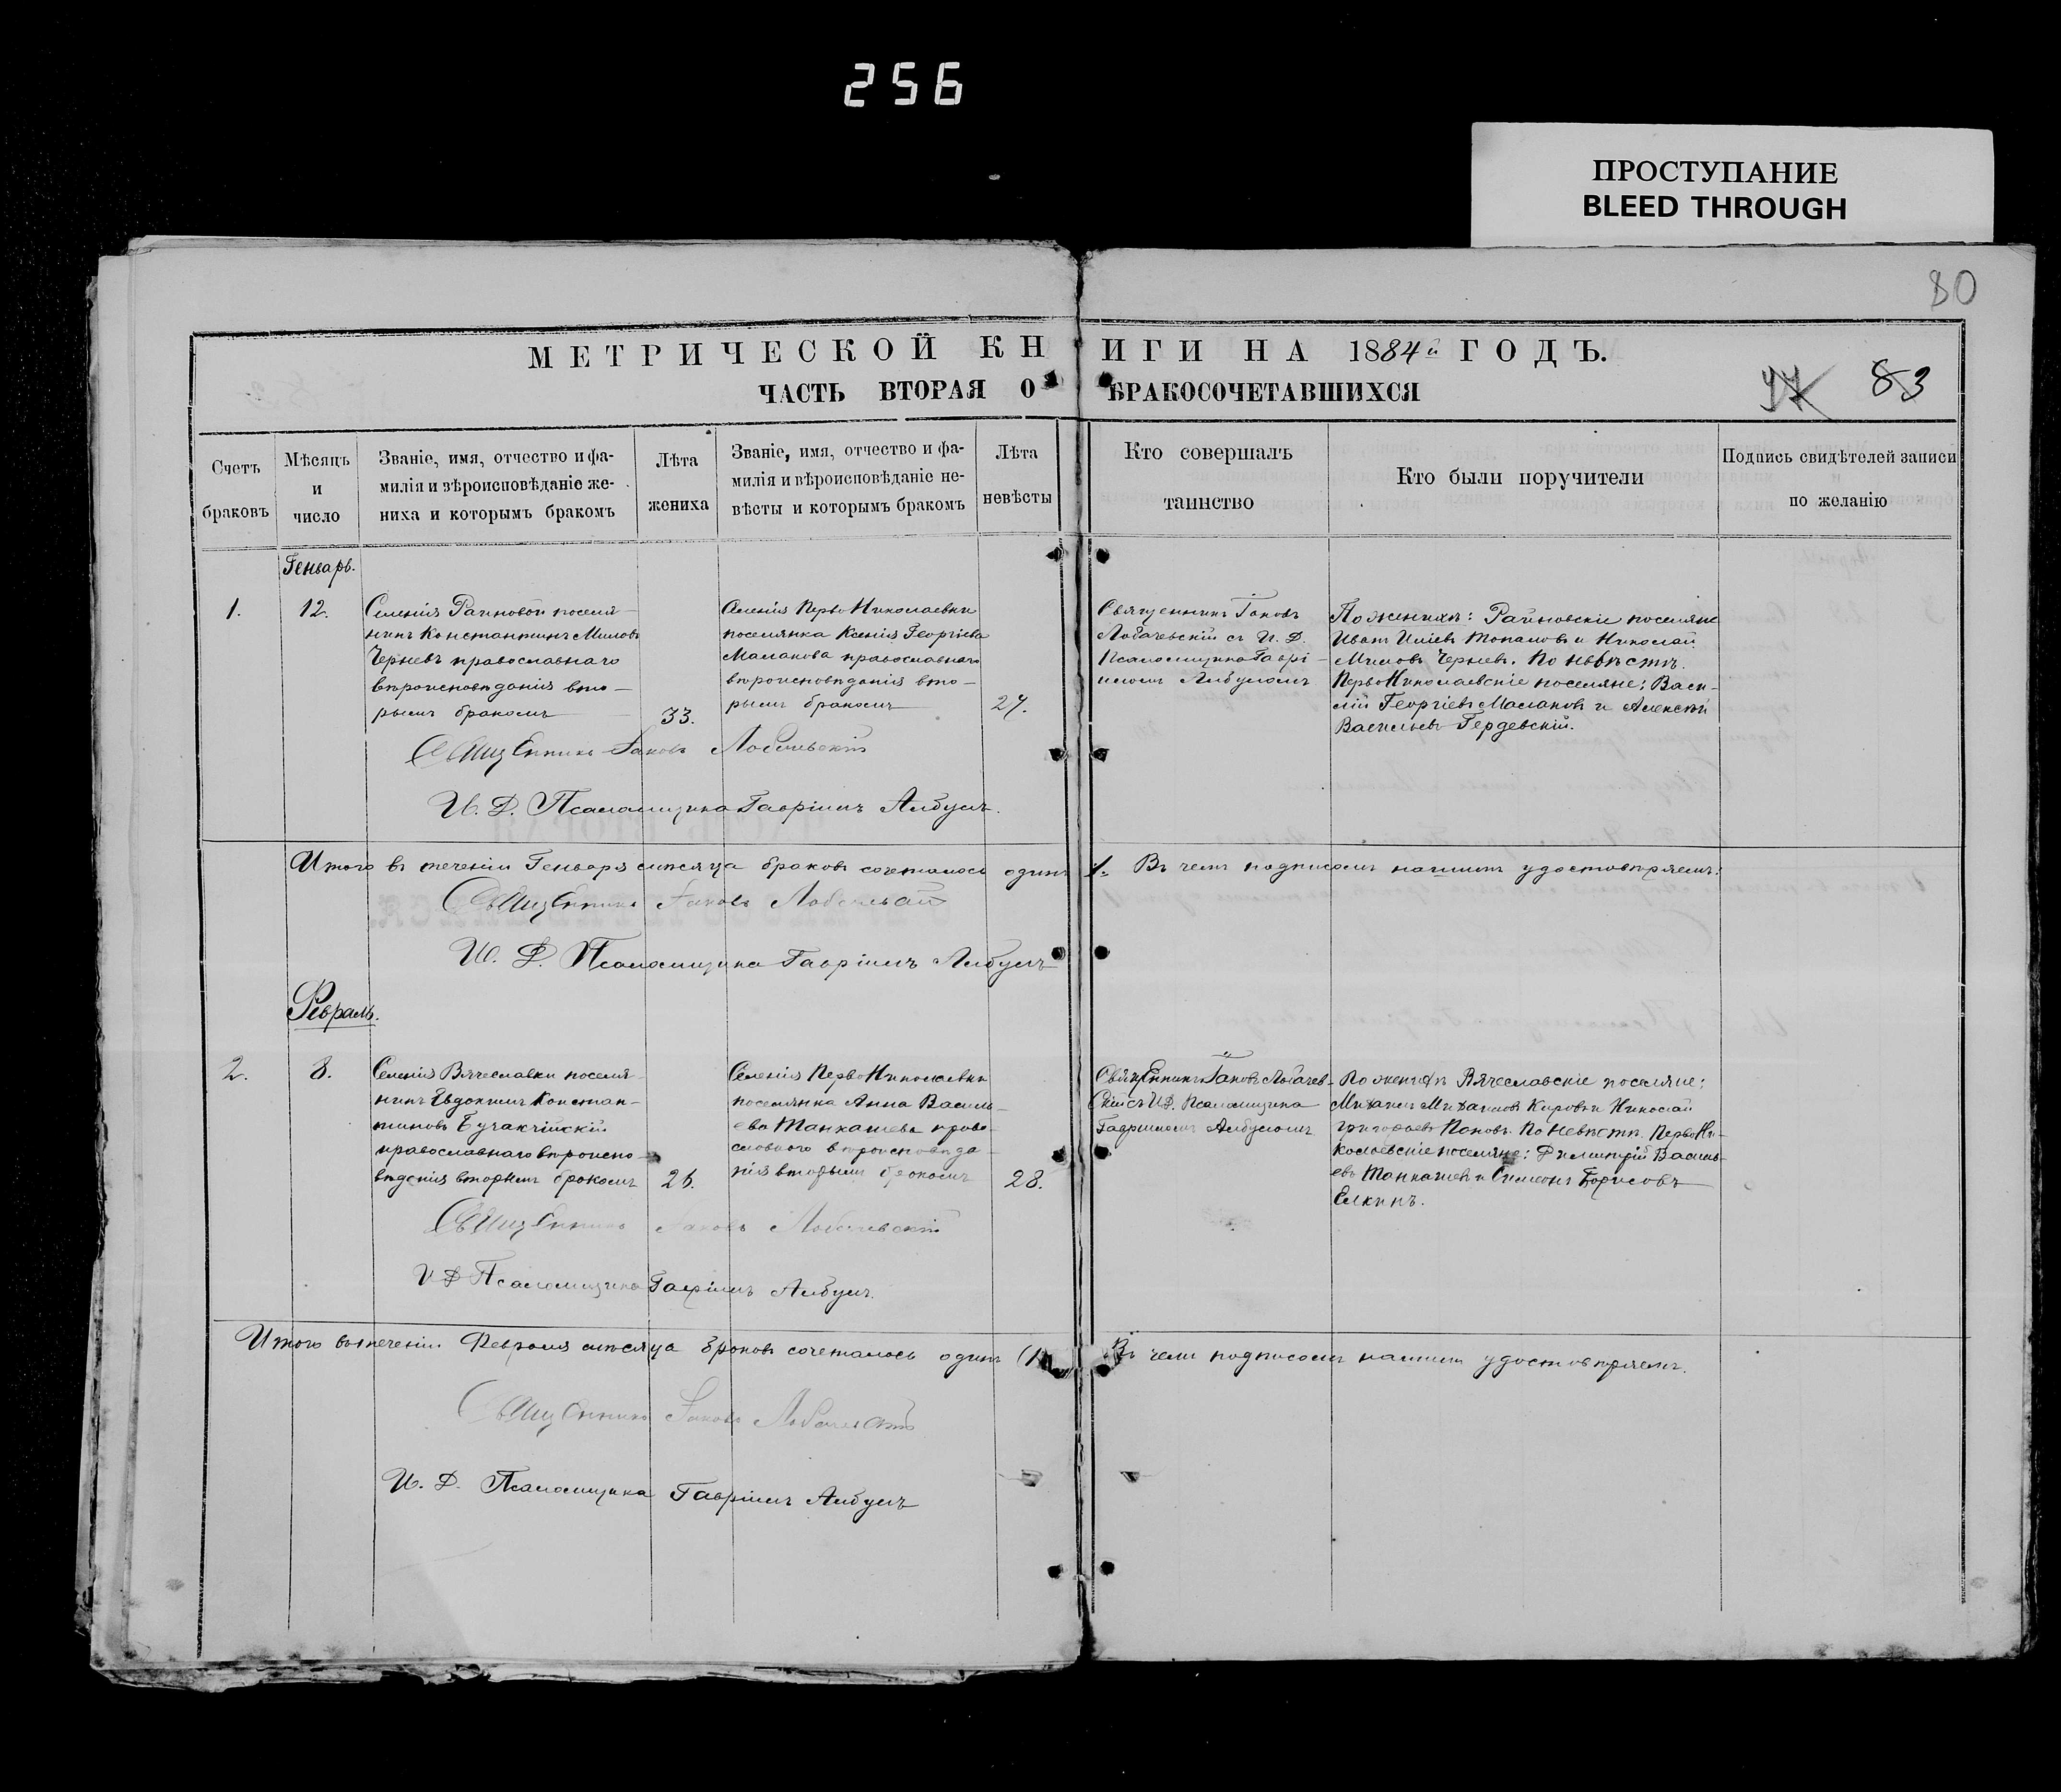 256
ПРОСТУПАНИЕ
BLEED THROUGH
80
МЕТРИЧЕСКОЙ КНИГИ НА 1884й ГОДЪ.
ЧАСТЬ ВТОРАЯ О БРАКОСОЧЕТАВШИХСЯ
83
Счетъ браковъ
Мѣсяцъ и число
Званіе, имя, отчество и фа-
милія и вѣроисповѣданіе же-
ниха и которымъ бракомъ
Лѣта жениха
Званіе, имя, отчество и фа-
милія и вѣроисповѣданіе не-
вѣсты и которымъ бракомъ
Лѣта невѣсты
Кто совершалъ таинство
Кто были поручители
Подпись свидѣтелей записи
по желанію
Генварь.
1.
12.
Селенія Раиновой поселя-
нинъ Константинъ Милов
Черневъ православнаго
вѣроисповѣданія вто-
рымъ бракомъ
33.
Селенія Перво Николаевки
поселянка Ксенія Георгіева
Маланова православнаго
вѣроисповѣданія вто-
рымъ бракомъ
27.
Священникъ Іаковъ
Лобачевскій съ И. Д.
Псаломщика Гаврі-
иломъ Албуломъ
По женихѣ: Райновскіе поселяне
Иванъ Иліевъ Топаловъ и Николай
Миловъ Черневъ. По невѣстѣ.
ПервоНиколаевскіе поселяне: Васи-
лій Георгіевъ Малановъ и Алексѣй
Васильевъ Гердевскій.
Священникъ Іаковъ Лобачевскій
И. Д. Псаломщика Гавріилъ Албулъ.
Итого въ теченіи Генваря мѣсяца браковъ сочеталось одинъ 1. Въ чемъ подписомъ нашимъ удостовѣряемъ:
Священникъ Іаковъ Лобачевскій
И. Д. Псаломщика Гавріилъ Албулъ
Февраль.
2.
8.
Селенія Вячеславки поселя-
нинъ Евдокимъ Констан-
тиновъ Бучакчійскій
православнаго вѣроиспо-
вѣданія вторымъ бракомъ
26.
Селенія ПервоНиколаевки
поселянка Анна Василь-
ева Танкашева право-
славного вѣроисповѣда-
нія вторымъ бракомъ
28.
Священникъ Іаковъ Лобачев-
скій съ И.Д. Псаломщика
Гавріиломъ Албуломъ
По женихѣ Вячеславскіе поселяне:
Михаилъ Михаиловъ Кировъ и Николай
Григорьевъ Поповъ. По невѣстѣ. ПервоНи-
колаевскіе поселяне: Димитрій Василь-
евъ Танкашевъ и Симеонъ Борисовъ
Елкинъ.
Священникъ Іаковъ Лобачевскій
И Д Псаломщика Гавріилъ Албулъ.
Итого въ теченіи Февраля мѣсяца браковъ сочеталось одинъ (1) Въ чемъ подписомъ нашимъ удостовѣряемъ.
Священникъ Іаковъ Лобачевскій
И. Д. Псаломщика Гавріилъ Албулъ